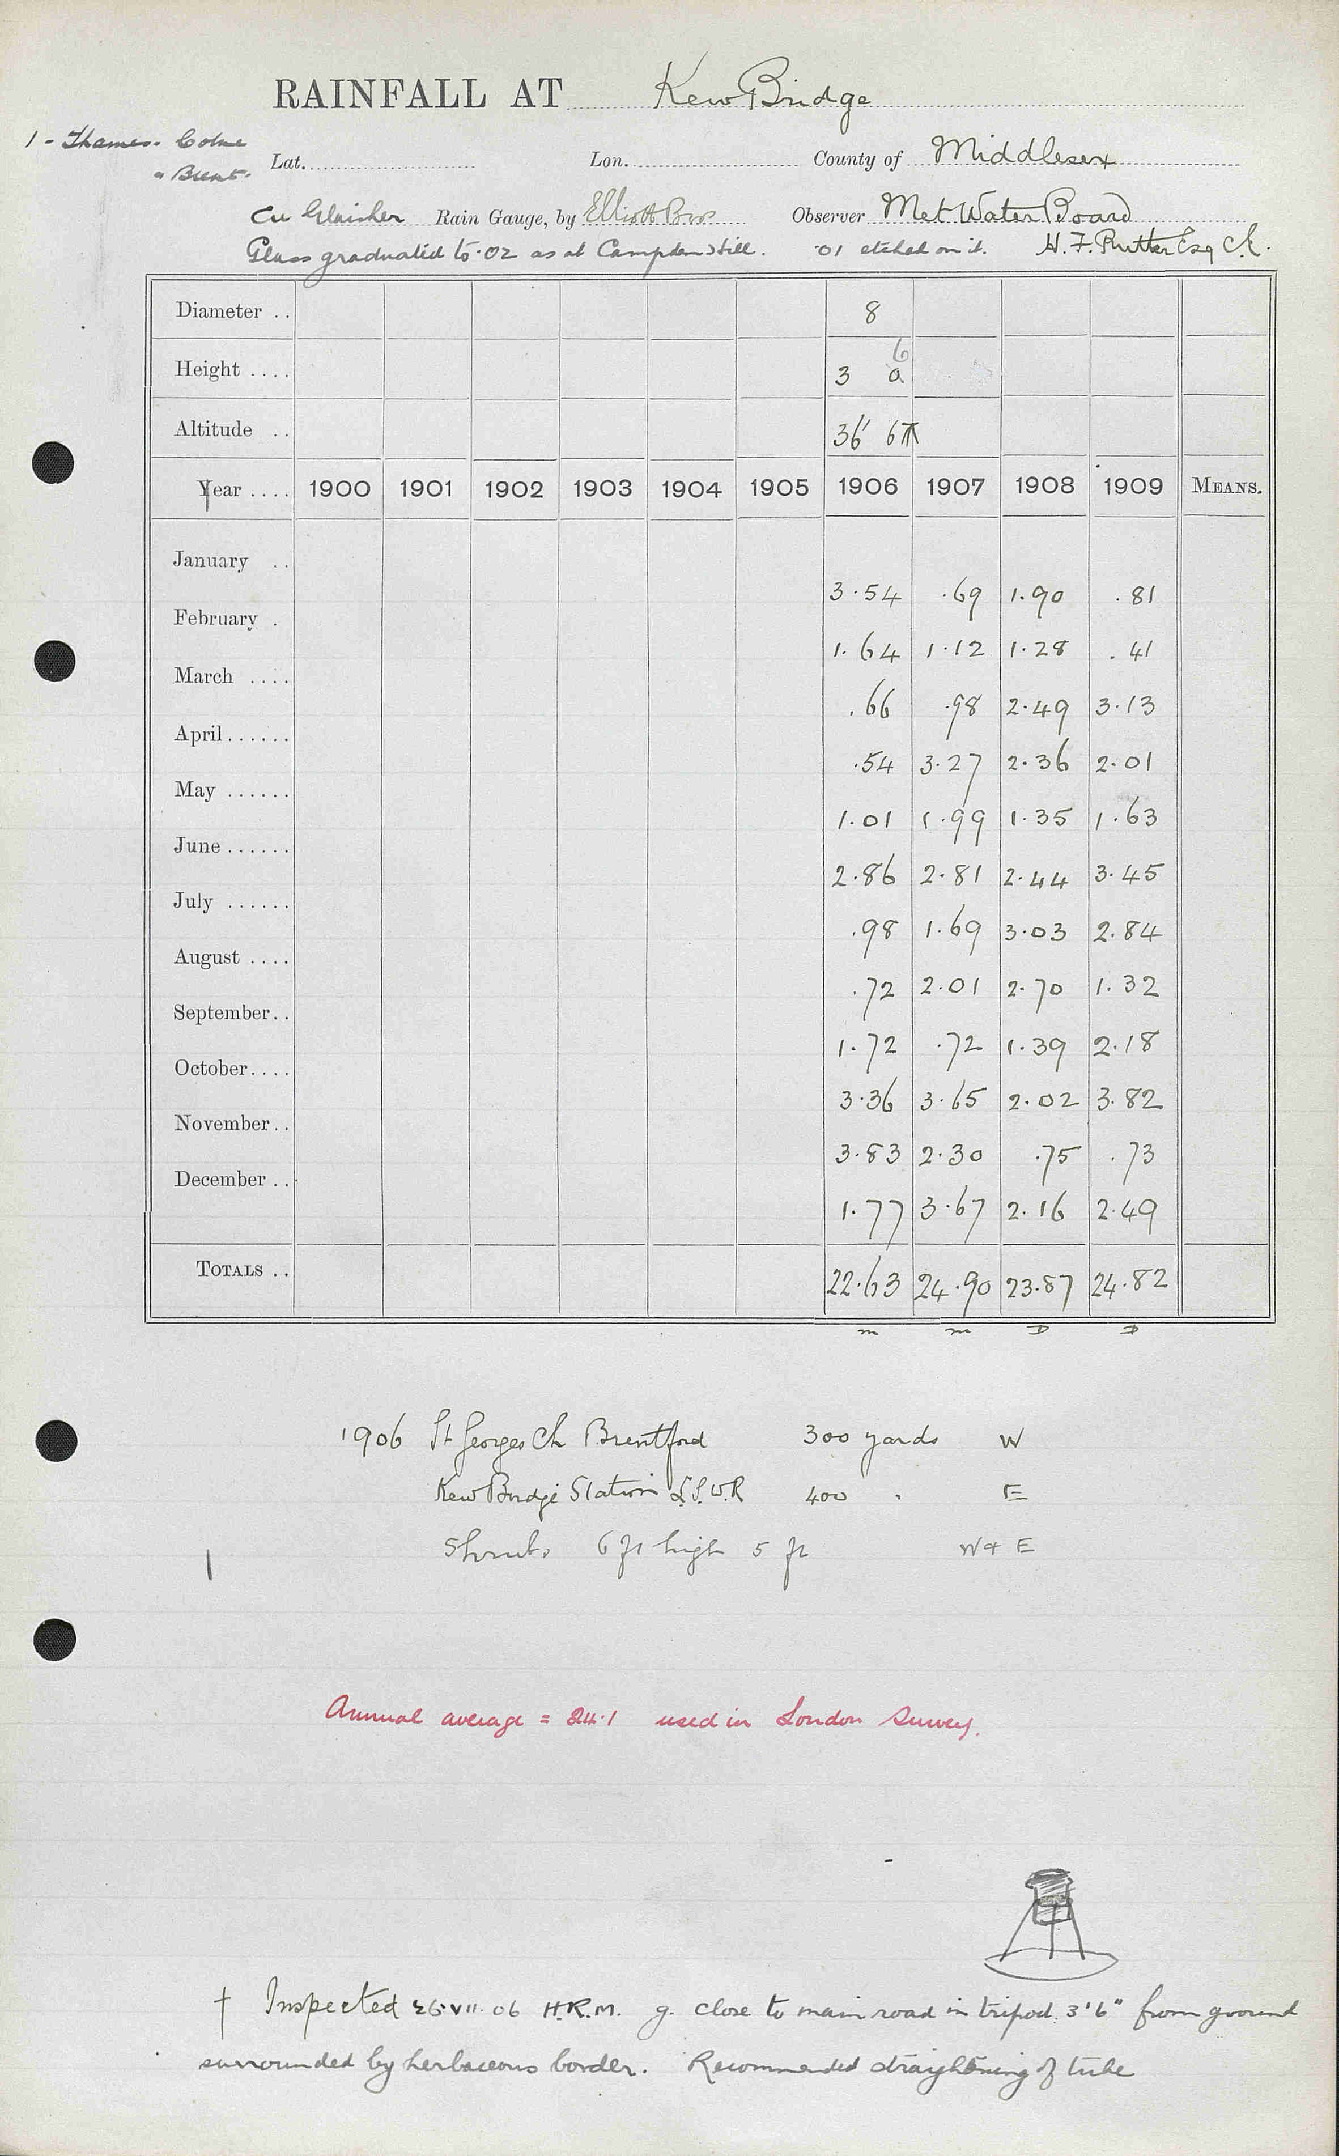 RAINFALL AT Kew Bridge
1 - Thames. Colne
" Brent.
Lat. Lon. County of Middlesex
Cu Glaisher Rain Gauge, by Elliott Bros Observer Met Water Board
Glass graduated to .02 as at Campden Hill. .01 etched on it. H. F. Rutter Esq C.E.
Diameter .. 8
6
Height .... 3 0
Altitude .. 36' 6
Year .... 1900 1901 1902 1903 1904 1905 1906 1907 1908 1909 MEANS.
January .. 3.54 .69 1.90 .81
February . 1.64 1.12 1.28 .41
March .... .66 .98 2.49 3.13
April...... .54 3.27 2.36 2.01
May ...... 1.01 1.99 1.35 1.63
June ...... 2.86 2.81 2.44 3.45
July ...... .98 1.69 3.03 2.84
August .... .72 2.01 2.70 1.32
September.. 1.72 .72 1.39 2.18
October.... 3.36 3.65 2.02 3.82
November.. 3.83 2.30 .75 .73
December .. 1.77 3.67 2.16 2.49
TOTALS .. 22.63 24.90 23.87 24.82
m m D D
1906 St Georges Ch Brentford 300 yards W
Kew Bridge Station L.S.W.R 400 " E
Shrubs 6 ft high 5 ft W & E
Annual average = 24.1 used in London Survey.
† Inspected 26.VII.06 H.R.M. g. close to main road in tripod 3'6" from ground
surrounded by herbaceous border. Recommended straightening of tube